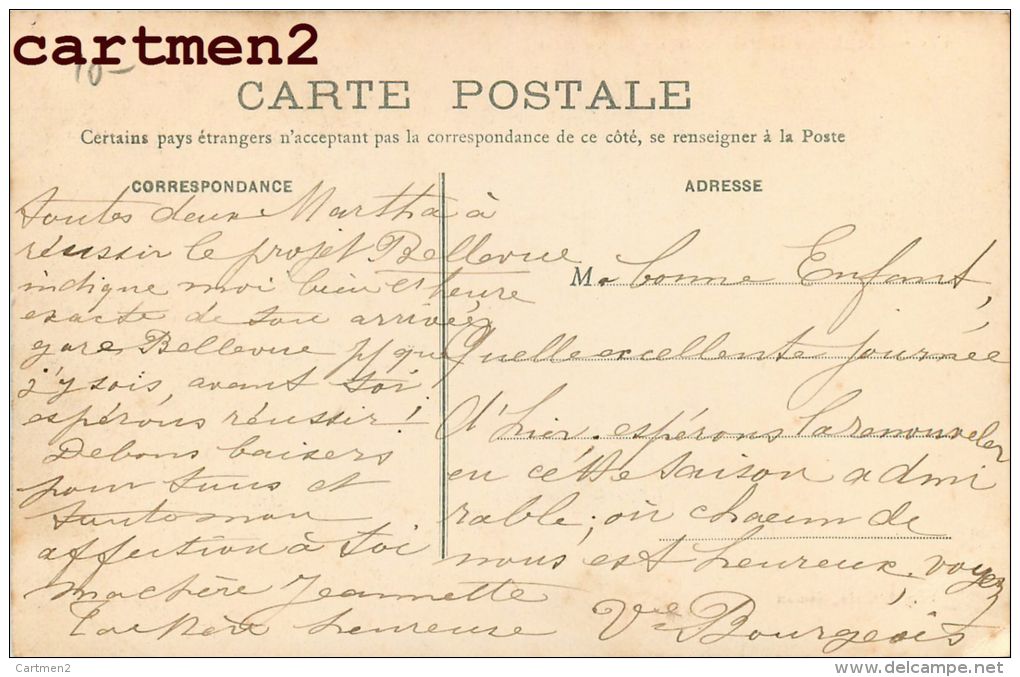 cartmen2
10-
CARTE POSTALE
Certains pays étrangers n'acceptant pas la correspondance de ce côté, se renseigner à la Poste
CORRESPONDANCE
ADRESSE
M. bonne Enfant,
Quelle excellente journée
d'hier. espérons la renouveler
en cette saison admi
rable; où chacun de
nous est heureux, voyez
toutes deux Martha à
réussir le projet Bellevue
indique moi bien l'heure
exacte de ton arrivée
gare Bellevue pr que
j'y sois, avant toi
espérons réussir!
De bons baisers
pour tous et
toute mon
affection à toi
ma chère Jeannette
heureuse
Vve Bourgeois
Cartmen2
delcampe.net